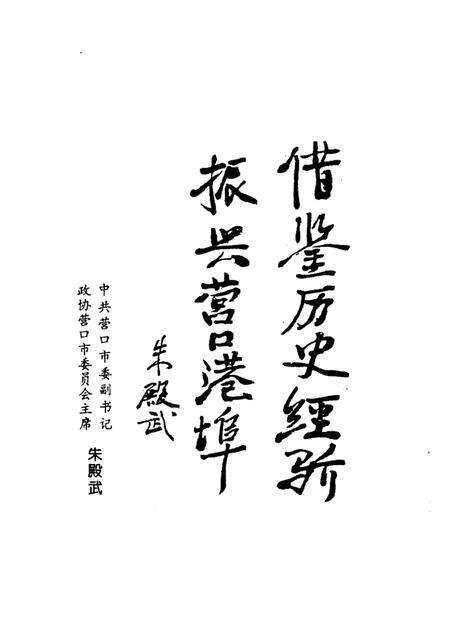 借鉴历史经验
振兴营口港埠
朱殿武
中共营口市委副书记
政协营口市委员会主席
朱殿武